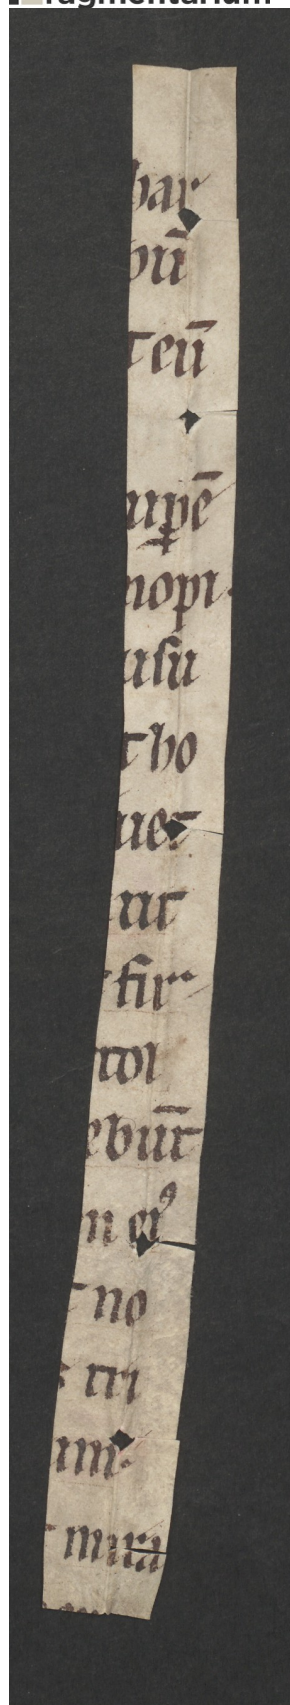 ragmentarium
bar
bū
teū
up̲ē
nopi.
usu
t ho
uet
nt
fir
tol
ebūt
n eiꝰ
t no
tri
mi.
t mira